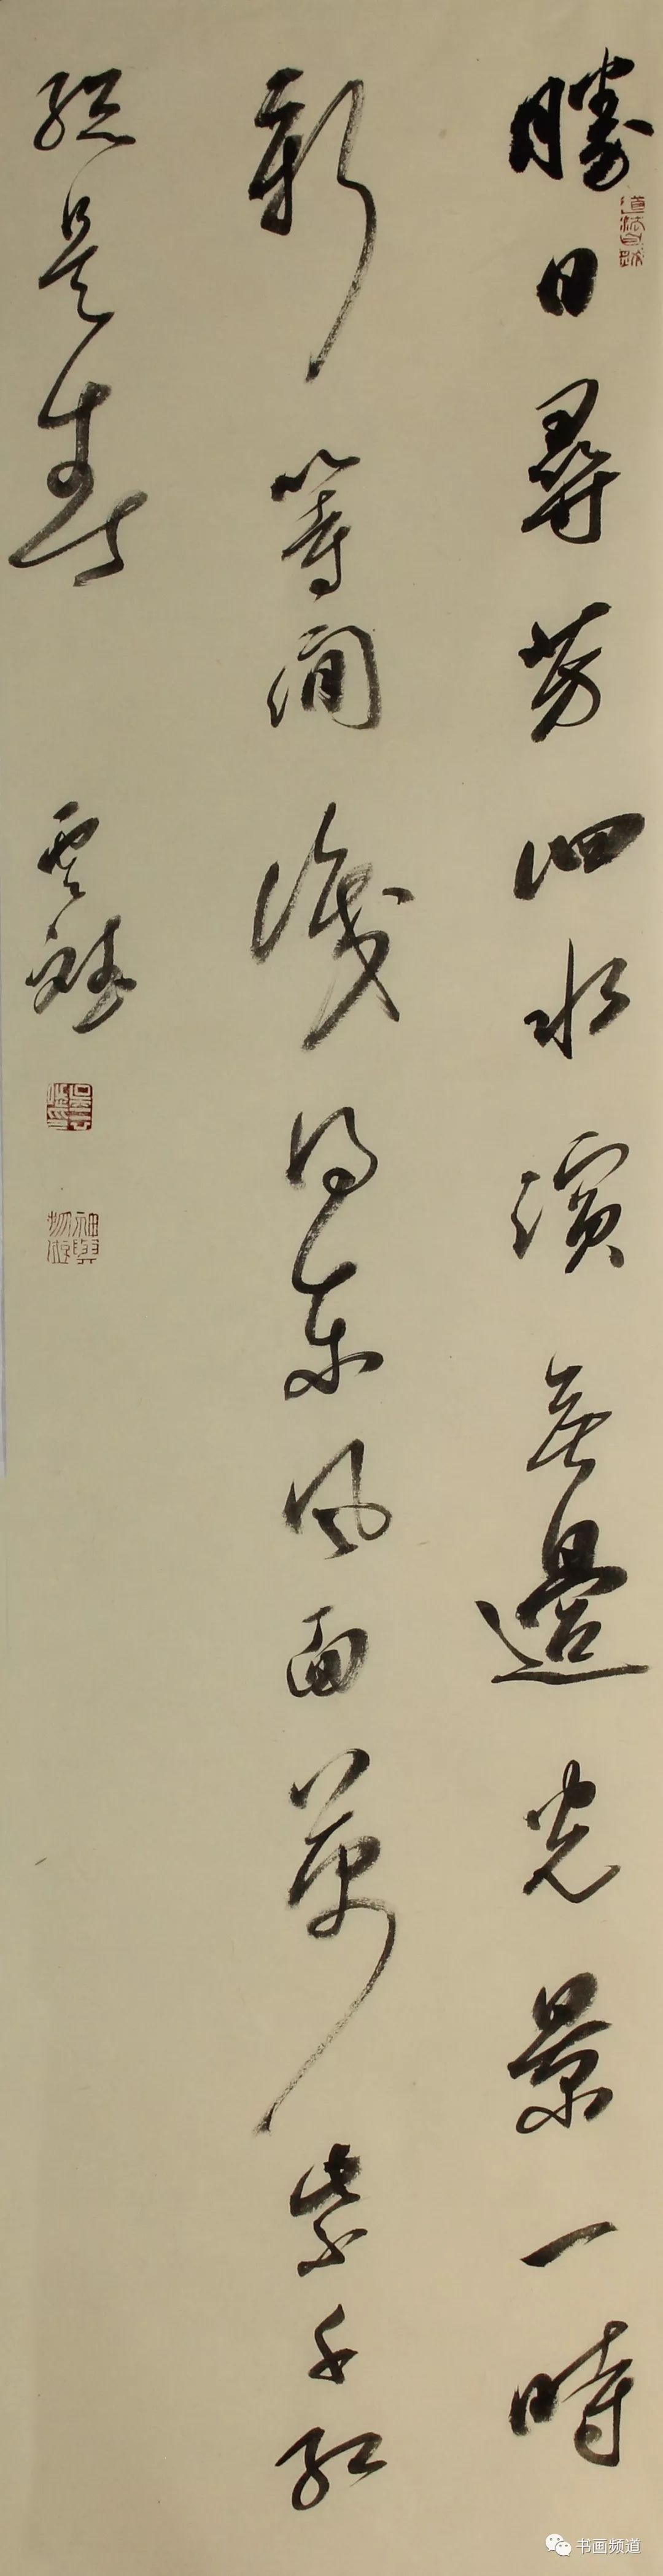 勝日尋芳泗水濱無邊光景一時
新等閒識得東風面萬紫千紅
總是春
道法自然
書画频道